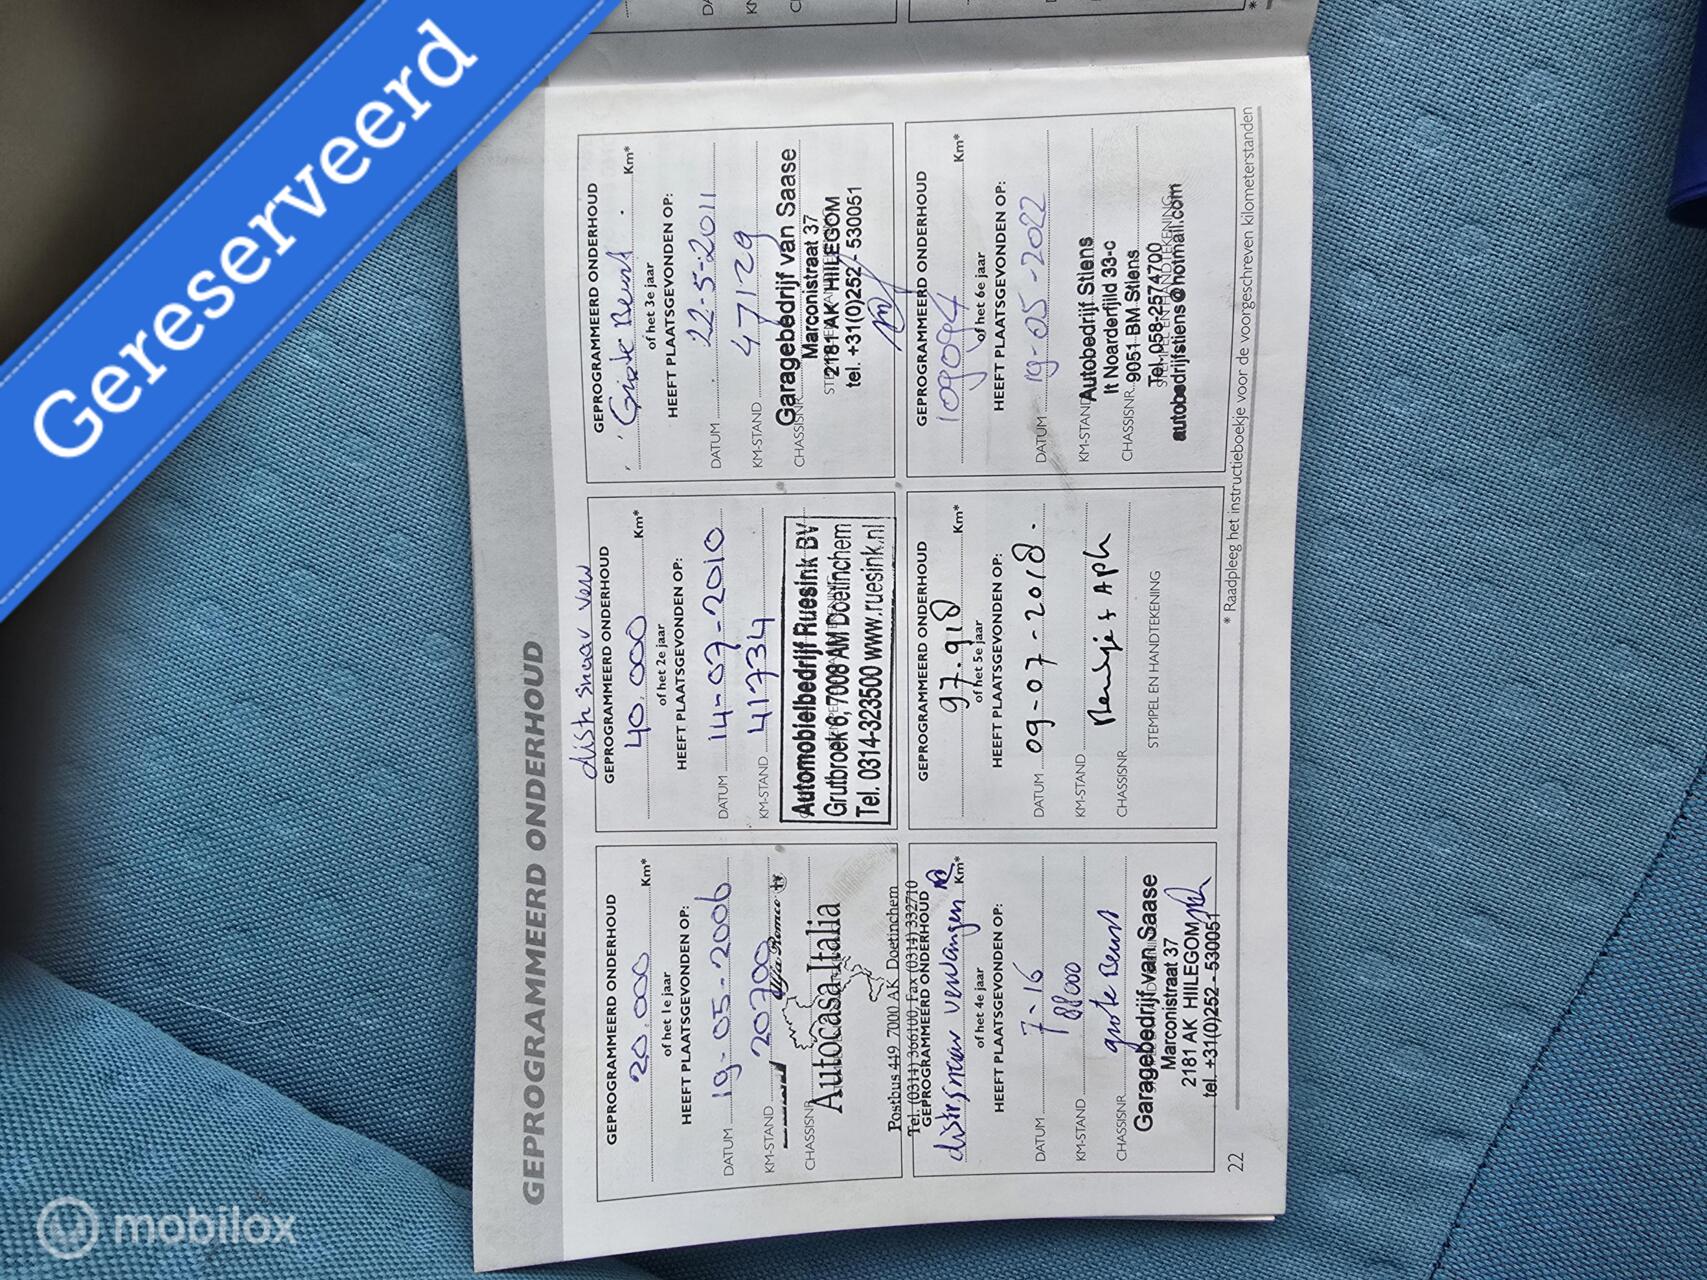 Gereserveerd
GEPROGRAMMEERD ONDERHOUD
GEPROGRAMMEERD ONDERHOUD
20.000 Km*
of het 1e jaar
HEEFT PLAATSGEVONDEN OP:
DATUM 19-05-2006
KM-STAND 20700
Alfa Romeo
CHASSISNR.
Autocasa Italia
Postbus 449 7000 AK Doetinchem
Tel. (0314) 366100, Fax (0314) 332710
distr snaar verv
GEPROGRAMMEERD ONDERHOUD
40.000 Km*
of het 2e jaar
HEEFT PLAATSGEVONDEN OP:
DATUM 14-07-2010
KM-STAND 41734
Automobielbedrijf Ruesink BV
Grutbroek 6, 7008 AM Doetinchem
Tel. 0314-323500 www.ruesink.nl
GEPROGRAMMEERD ONDERHOUD
Grote Beurt. Km*
of het 3e jaar
HEEFT PLAATSGEVONDEN OP:
DATUM 22-5-2011
KM-STAND 47129
CHASSISNR.
Garagebedrijf van Saase
Marconistraat 37
2181 AK HILLEGOM
tel. +31(0)252 - 530051
GEPROGRAMMEERD ONDERHOUD
distr snaar vervangen Km*
of het 4e jaar
HEEFT PLAATSGEVONDEN OP:
DATUM 7-16
KM-STAND 88000
CHASSISNR. grote Beurt
Garagebedrijf van Saase
Marconistraat 37
2181 AK HILLEGOM
tel. +31(0)252 - 530051
GEPROGRAMMEERD ONDERHOUD
97.918 Km*
of het 5e jaar
HEEFT PLAATSGEVONDEN OP:
DATUM 09-07-2018.
KM-STAND
CHASSISNR.
STEMPEL EN HANDTEKENING
GEPROGRAMMEERD ONDERHOUD
109094 Km*
of het 6e jaar
HEEFT PLAATSGEVONDEN OP:
DATUM 19-05-2022
KM-STAND
Autobedrijf Stiens
It Noarderfjild 33-c
CHASSISNR. 9051 BM Stiens
Tel. 058-2574700
STEMPEL EN HANDTEKENING
autobedrijfstiens@hotmail.com
* Raadpleeg het instructieboekje voor de voorgeschreven kilometerstanden
22
mobilox